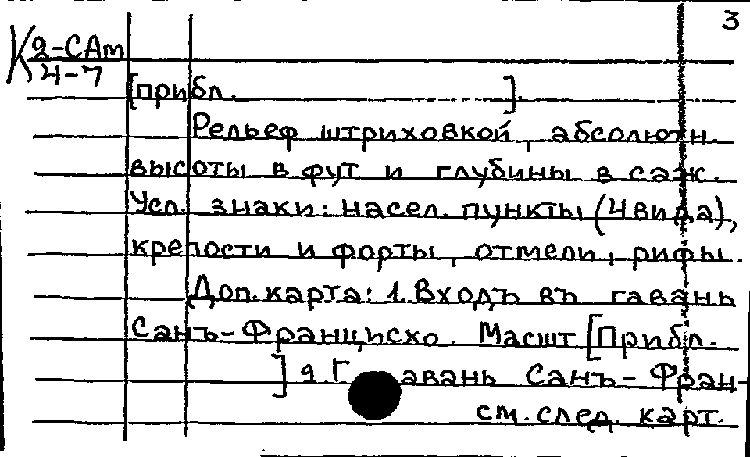 3
К 2-САм
4-7
[прибл. ].
Рельеф штриховкой, абсолютн.
высоты в фут и глубины в саж.
Усл. знаки: насел. пункты (4 вида),
крепости и форты, отмели, рифы.
Доп. карта: 1. Входъ въ гавань
Санъ-Францисхо. Масшт [Прибл.
] 2. Гавань Санъ-Фран-
см. след. карт.